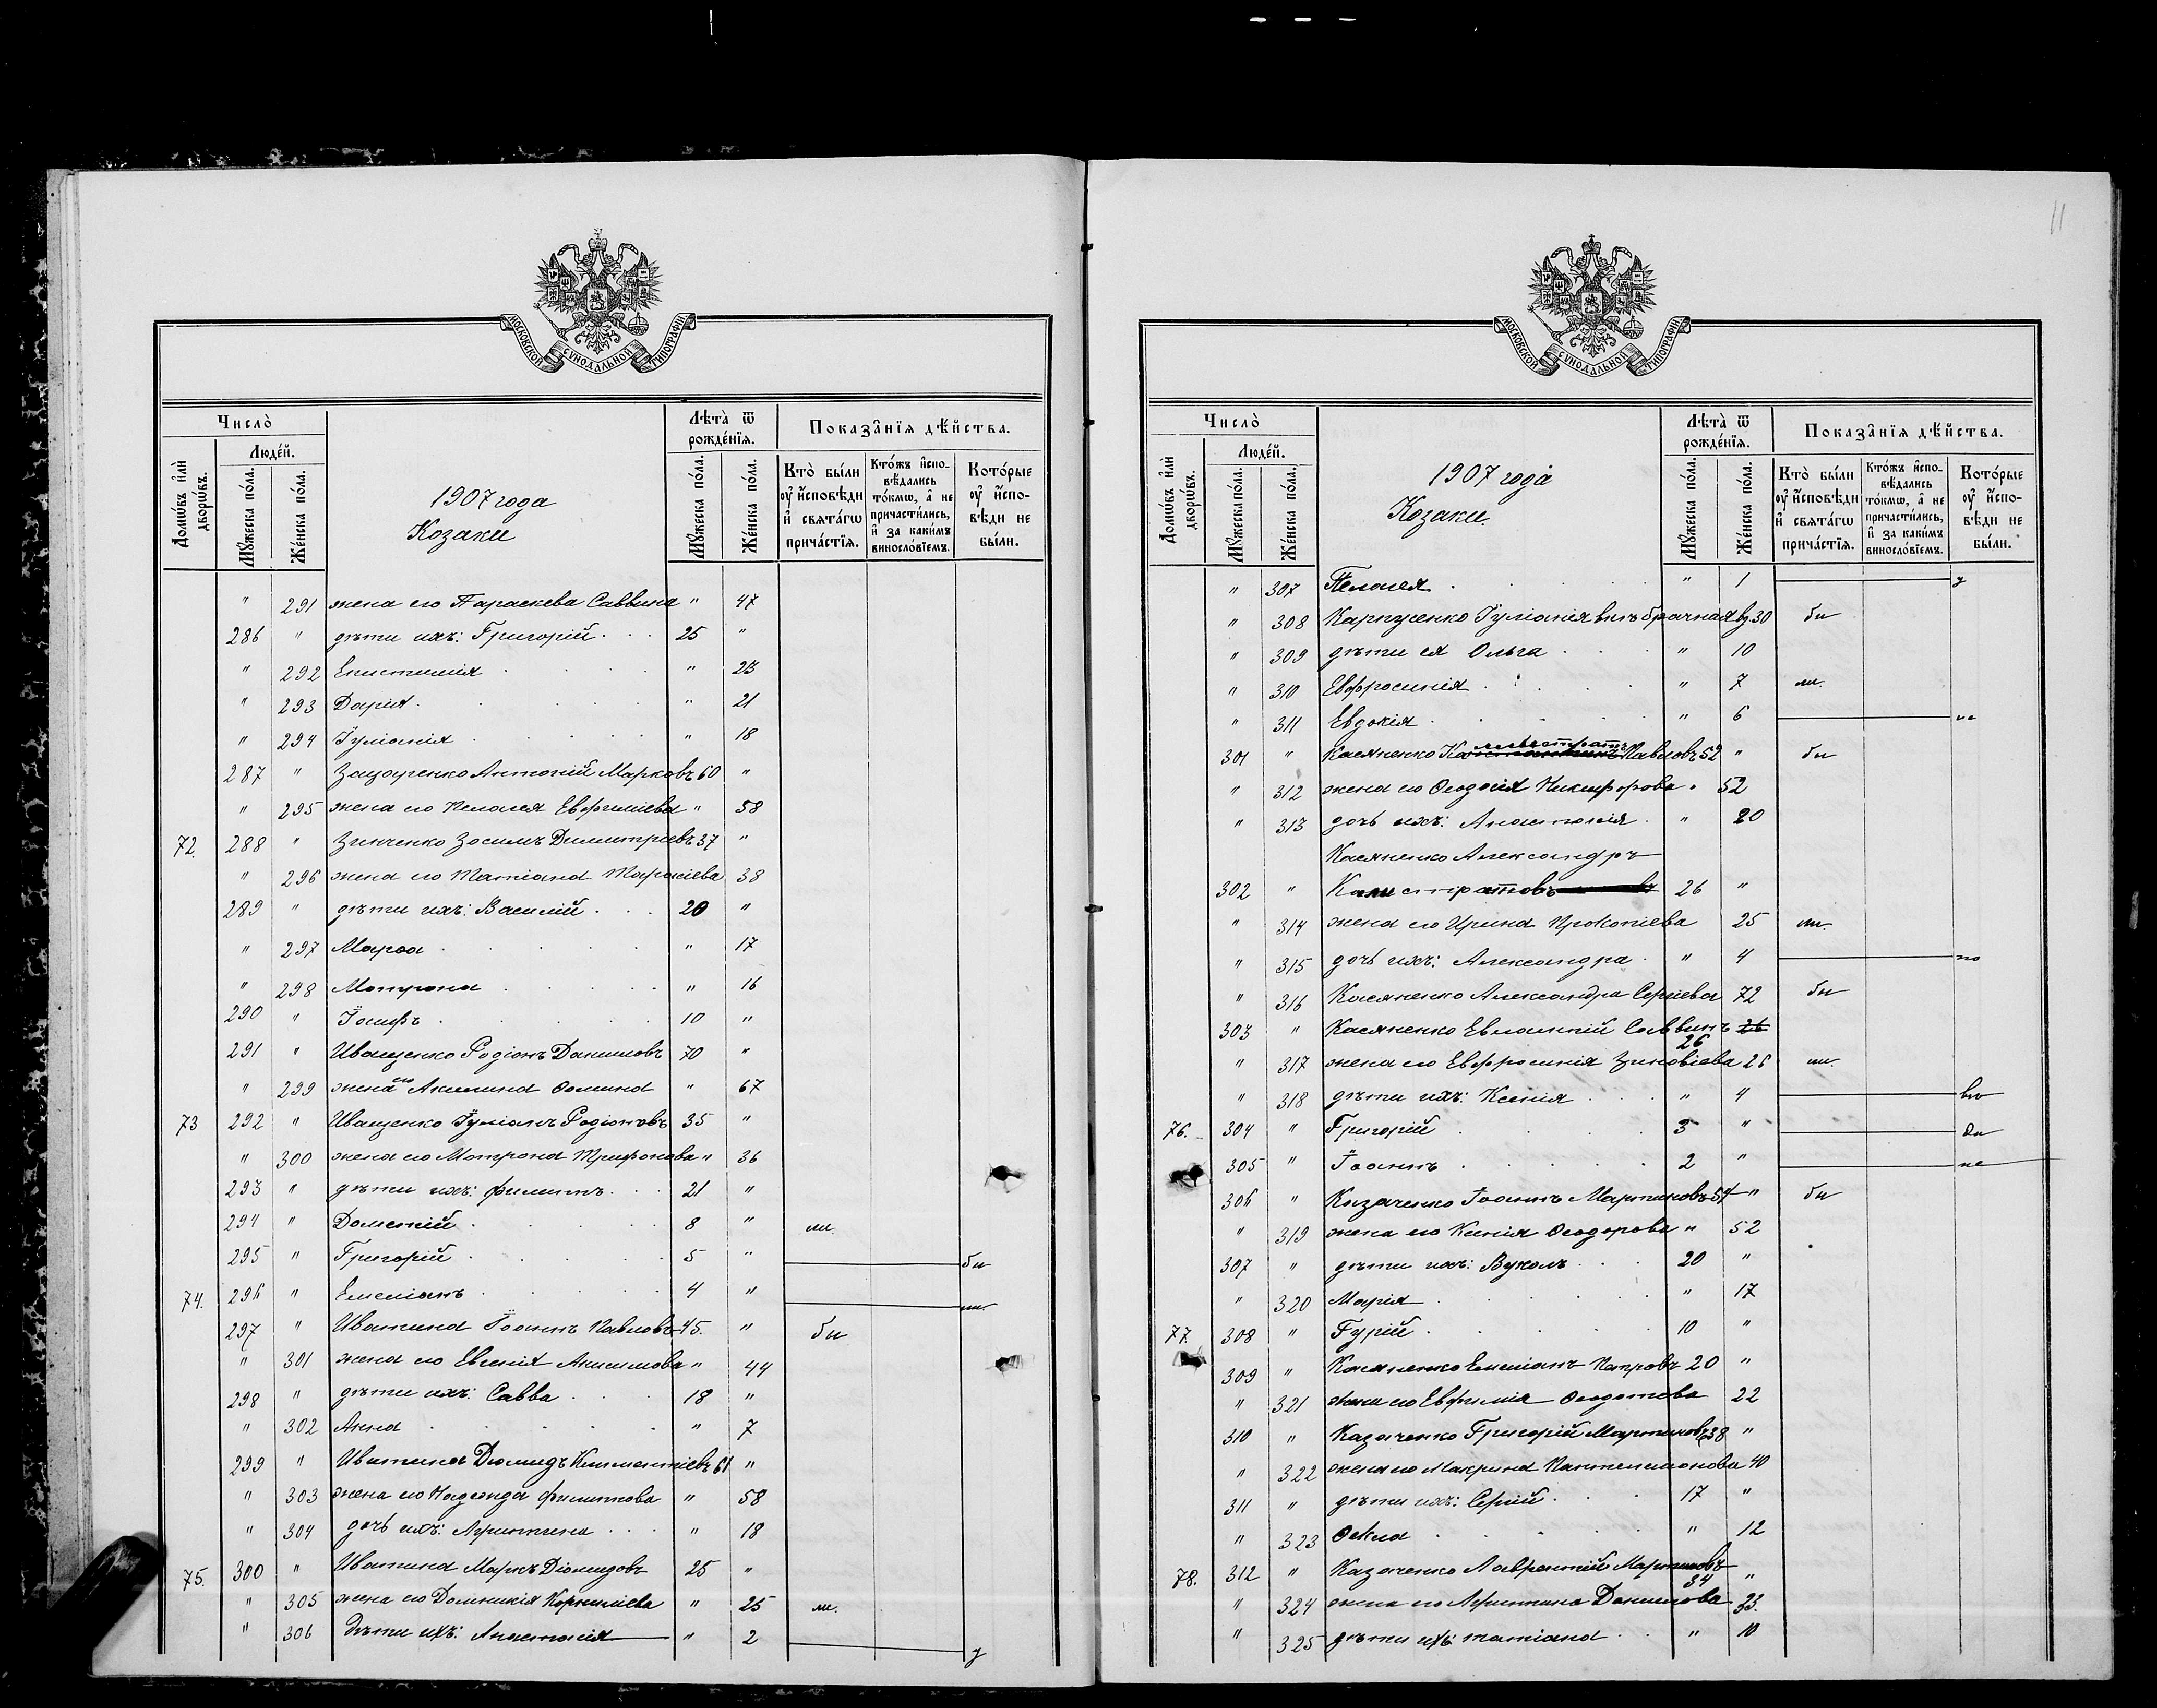 11
МОСКОВСКОЙ СѴНОДАЛЬНОЙ ТИПОГРАФІИ
Число̀
Люде́й.
Домѡ́въ и҆лѝ дворѡ́въ.
Мꙋ́жеска по́ла.
Же́нска по́ла.
1907 года
Козаки
Лѣта̀ ѿ рожде́нїѧ.
Мꙋ́жеска по́ла.
Же́нска по́ла.
Показа̂нїѧ дѣ́йства.
Кто̀ бы́ли ᲂу҆ и҆сповѣди и҆ свѧта́гѡ прича́стїѧ.
Кто́жъ и҆спо-вѣдались то́кмѡ, а҆ не причасти́лись, и҆ за каки́мъ винослѡ́вїемъ.
Кото́рые ᲂу҆ и҆спо-вѣди не бы́ли.
" 291 жена его Параскева Саввина " 47
286 " дѣти ихъ: Григорій 25 "
" 292 Епистимія " 23
" 293 Дарія " 21
" 294 Іуліанія " 18
287 " Антоній Марковъ 60 "
" 295 жена его Пелагея Евфиміева " 58
72. 288 " Зинченко Зосимъ Димитріевъ 37 "
" 296 жена его Татіана Тарасіева 38
289 " дѣти ихъ: Василій 20 "
" 297 Марѳа " 17
" 298 Матрона " 16
290 " Іосифъ 10 "
291 " Иващенко Родіонъ Даниловъ 70 "
" 299 жена его Акилина Ѳомина " 67
73 292 " Иващенко Іуліанъ Родіоновъ 35 "
" 300 жена его Матрона Трифонова " 36
293 " дѣти ихъ: Филиппъ 21 "
294 " Дометій 8 " ли.
295 " Григорій 5 " бы
74. 296 " Емеліанъ 4 " ли
297 " Иватина Іоаннъ Павловъ 45. " бы
" 301 жена его Евгенія Анисимова " 44
298 " дѣти ихъ: Савва 18 "
" 302 Анна " 7
299 " Иватина Діомидъ Климентіевъ 61 "
" 303 жена его Надежда Филиппова " 58
" 304 дочь ихъ: Христина " 18
75. 300 " Иватина Маркъ Діомидовъ 25 "
" 305 жена его Домникія Корниліева " 25 ли.
" 306 Дѣти ихъ: Анастасія " 2 у
МОСКОВСКОЙ СѴНОДАЛЬНОЙ ТИПОГРАФІИ
Число̀
Люде́й.
Домѡ́въ и҆лѝ дворѡ́въ.
Мꙋ́жеска по́ла.
Же́нска по́ла.
1907 года
Козаки
Лѣта̀ ѿ рожде́нїѧ.
Мꙋ́жеска по́ла.
Же́нска по́ла.
Показа̂нїѧ дѣ́йства.
Кто̀ бы́ли ᲂу҆ и҆сповѣди и҆ свѧта́гѡ прича́стїѧ.
Кто́жъ и҆спо-вѣдались то́кмѡ, а҆ не причасти́лись, и҆ за каки́мъ винослѡ́вїемъ.
Кото́рые ᲂу҆ и҆спо-вѣди не бы́ли.
" 307 Пелагея " 1 у
" 308 Карпусенко Іуліанія внѣбрачная 30 бы
" 309 дѣти ея Ольга " 10
" 310 Евфросинія " 7 ли.
" 311 Евдокія " 6 не
301 " Касяненко Павловъ 52 " бы
" 312 жена его Ѳеодосія Никифорова " 52
" 313 дочь ихъ: Анастасія " 20
Касяненко Александръ
302 " Калистратовъ 26 "
" 314 жена его Ирина Прокопіева 25 ли.
" 315 дочь ихъ: Александра " 4 по
" 316 Касяненко Александра Сергіева 72 бы
303 " Касяненко Евлампій Саввинъ 26
26
" 317 жена его Евфросинія Зиновіева 26 ли.
" 318 дѣти ихъ: Ксенія " 4
76. 304 " Григорій 3 "
305 " Іоаннъ 2 " не
306 " Казаченко Іоаннъ Мартиновъ 54 " бы
" 319 жена его Ксенія Ѳеодорова " 52
307 " дѣти ихъ: Вуколъ 20 "
" 320 Марія " 17
77. 308 " Гурій 10 "
309 " Касяненко Емеліанъ Петровъ 20 "
" 321 жена его Евфимія Ѳеодотова 22
310 " Казаченко Григорій Мартиновъ 38 "
" 322 жена его Макрина Пантелеимонова 40
311 " дѣти ихъ: Сергій 17 "
" 323 Ѳекла " 12
78. 312 " Казаченко Лаврентій Мартиновъ
34 "
" 324 жена его Христина Данилова 33.
" 325 дѣти ихъ: Татіана " 10